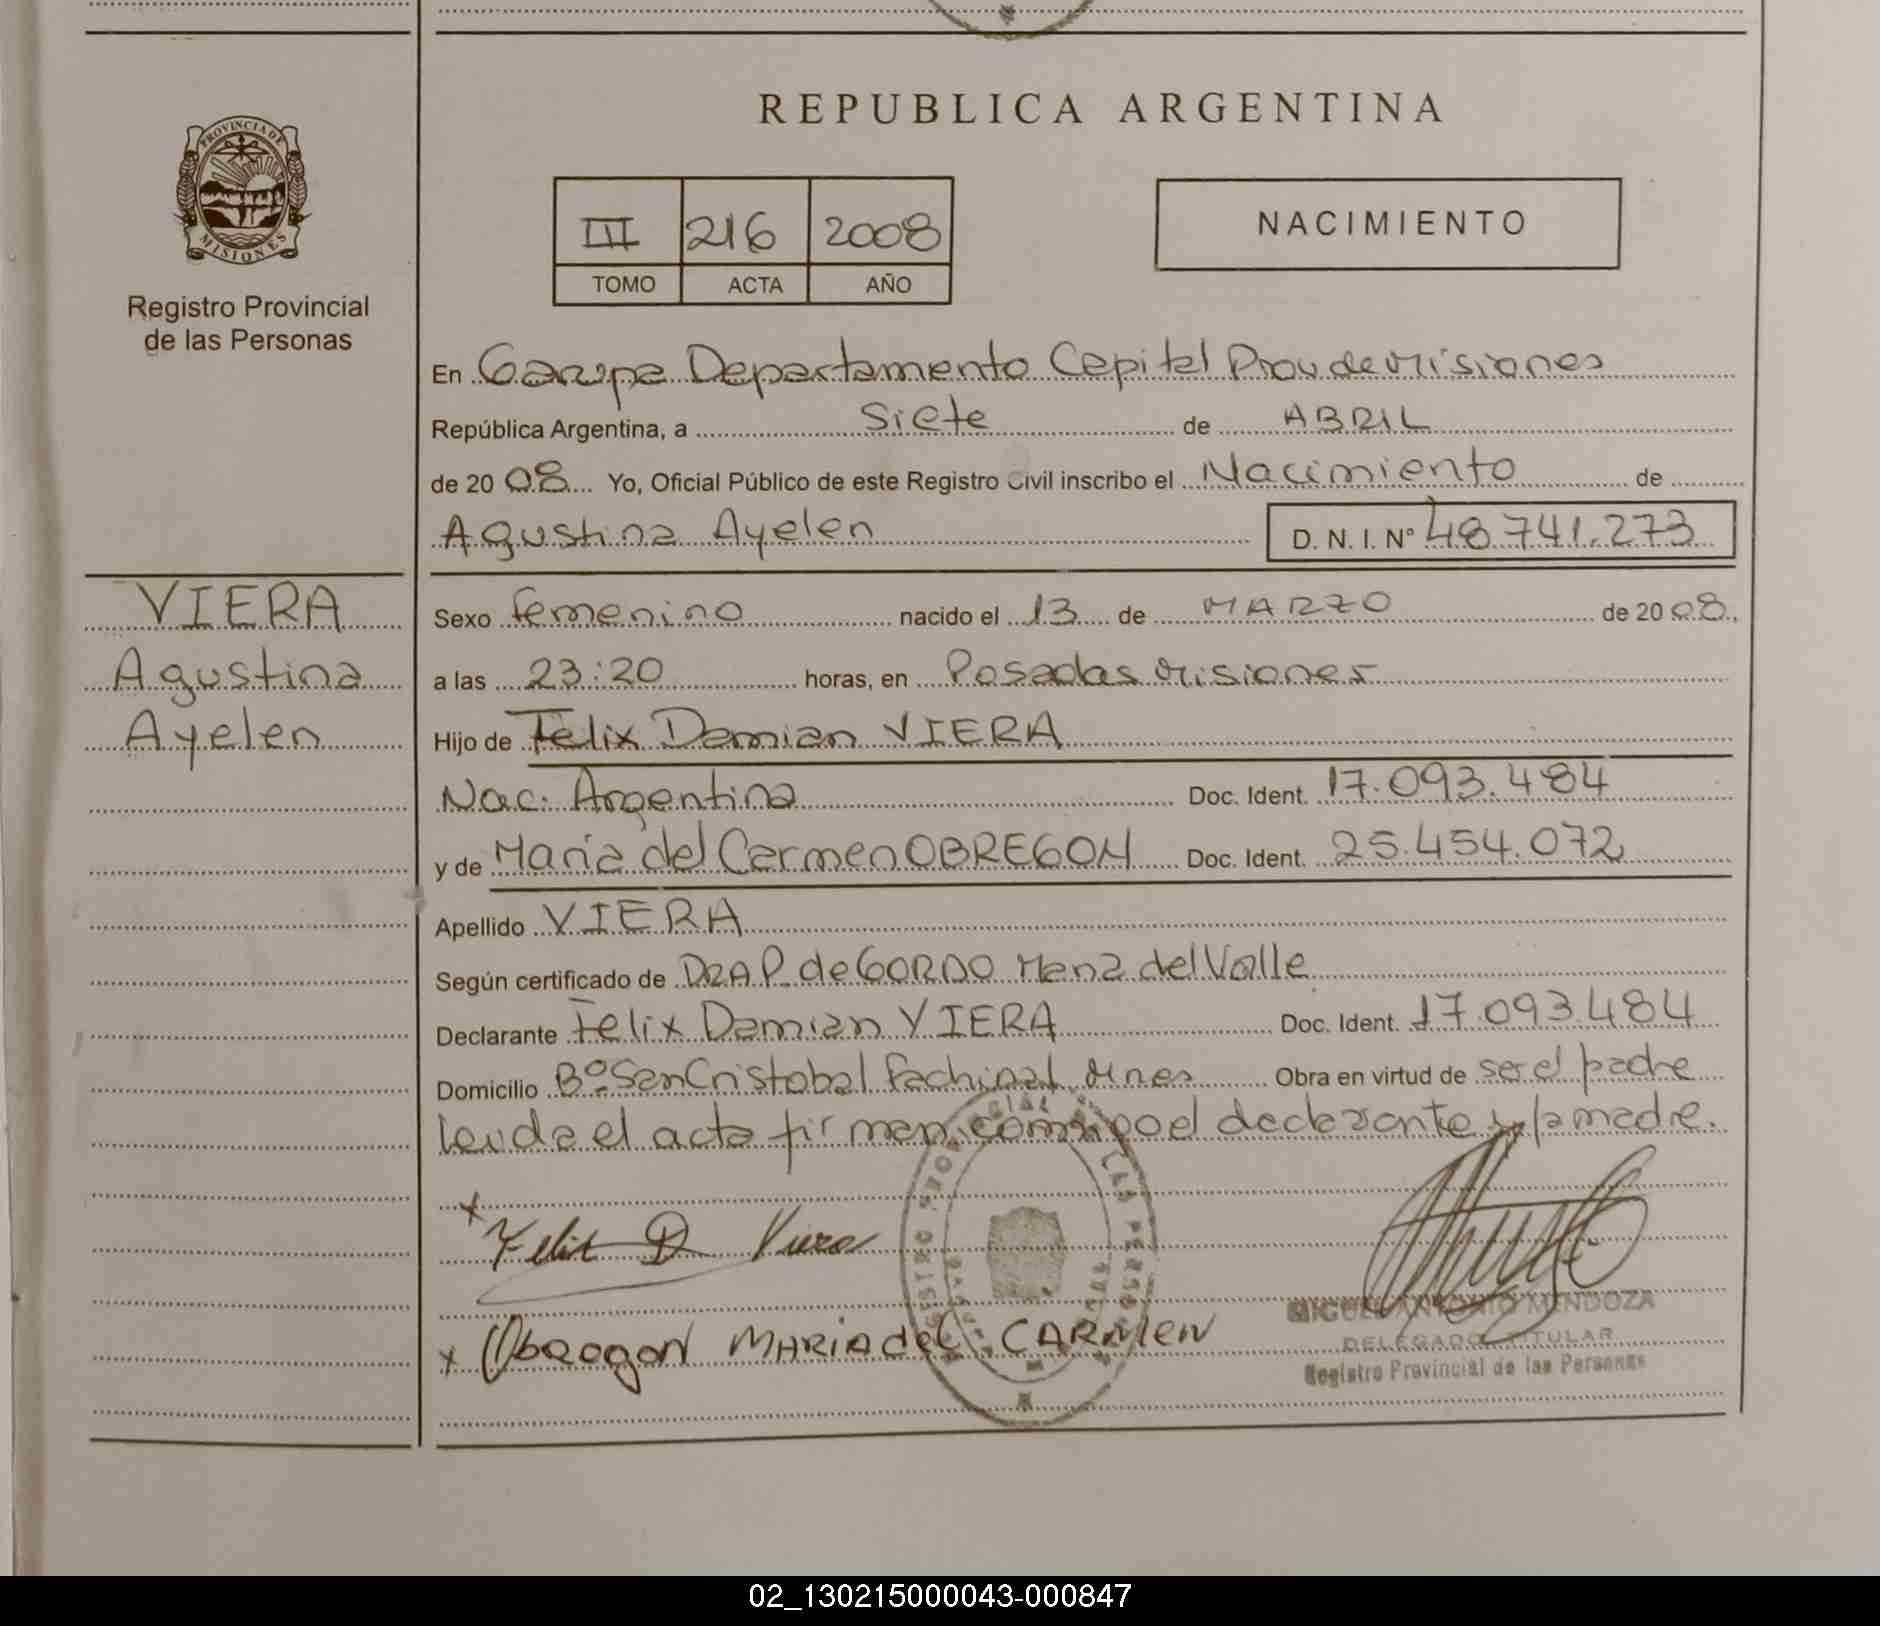 REPUBLICA ARGENTINA
PROVINCIA DE
MISIONES
Registro Provincial
de las Personas
III 216 2008
TOMO ACTA AÑO
NACIMIENTO
En Garupa Departamento Capital Prov de Misiones
República Argentina, a Siete de ABRIL
de 2008 Yo, Oficial Público de este Registro Civil inscribo el Nacimiento de
Agustina Ayelen D. N. I. N° 48.741.273
VIERA
Agustina
Ayelen
Sexo femenino nacido el 13 de MARZO de 2008.
a las 23:20 horas, en Posadas Misiones
Hijo de Felix Damian VIERA
Nac. Argentina Doc. Ident. 17.093.484
y de Maria del Carmen OBREGON Doc. Ident. 25.454.072
Apellido VIERA
Según certificado de DRA P. de GORDO Maria del Valle
Declarante Felix Damian VIERA Doc. Ident. 17.093.484
Domicilio B° San Cristobal Fachinal Mnes Obra en virtud de ser el padre
Leida el acta firman conmigo el declarante y la madre.
x Felix D Viera
x Obregon MARIA del CARMEN
MIGUEL ANTONIO MENDOZA
DELEGADO TITULAR
Registro Provincial de las Personas
02_130215000043-000847